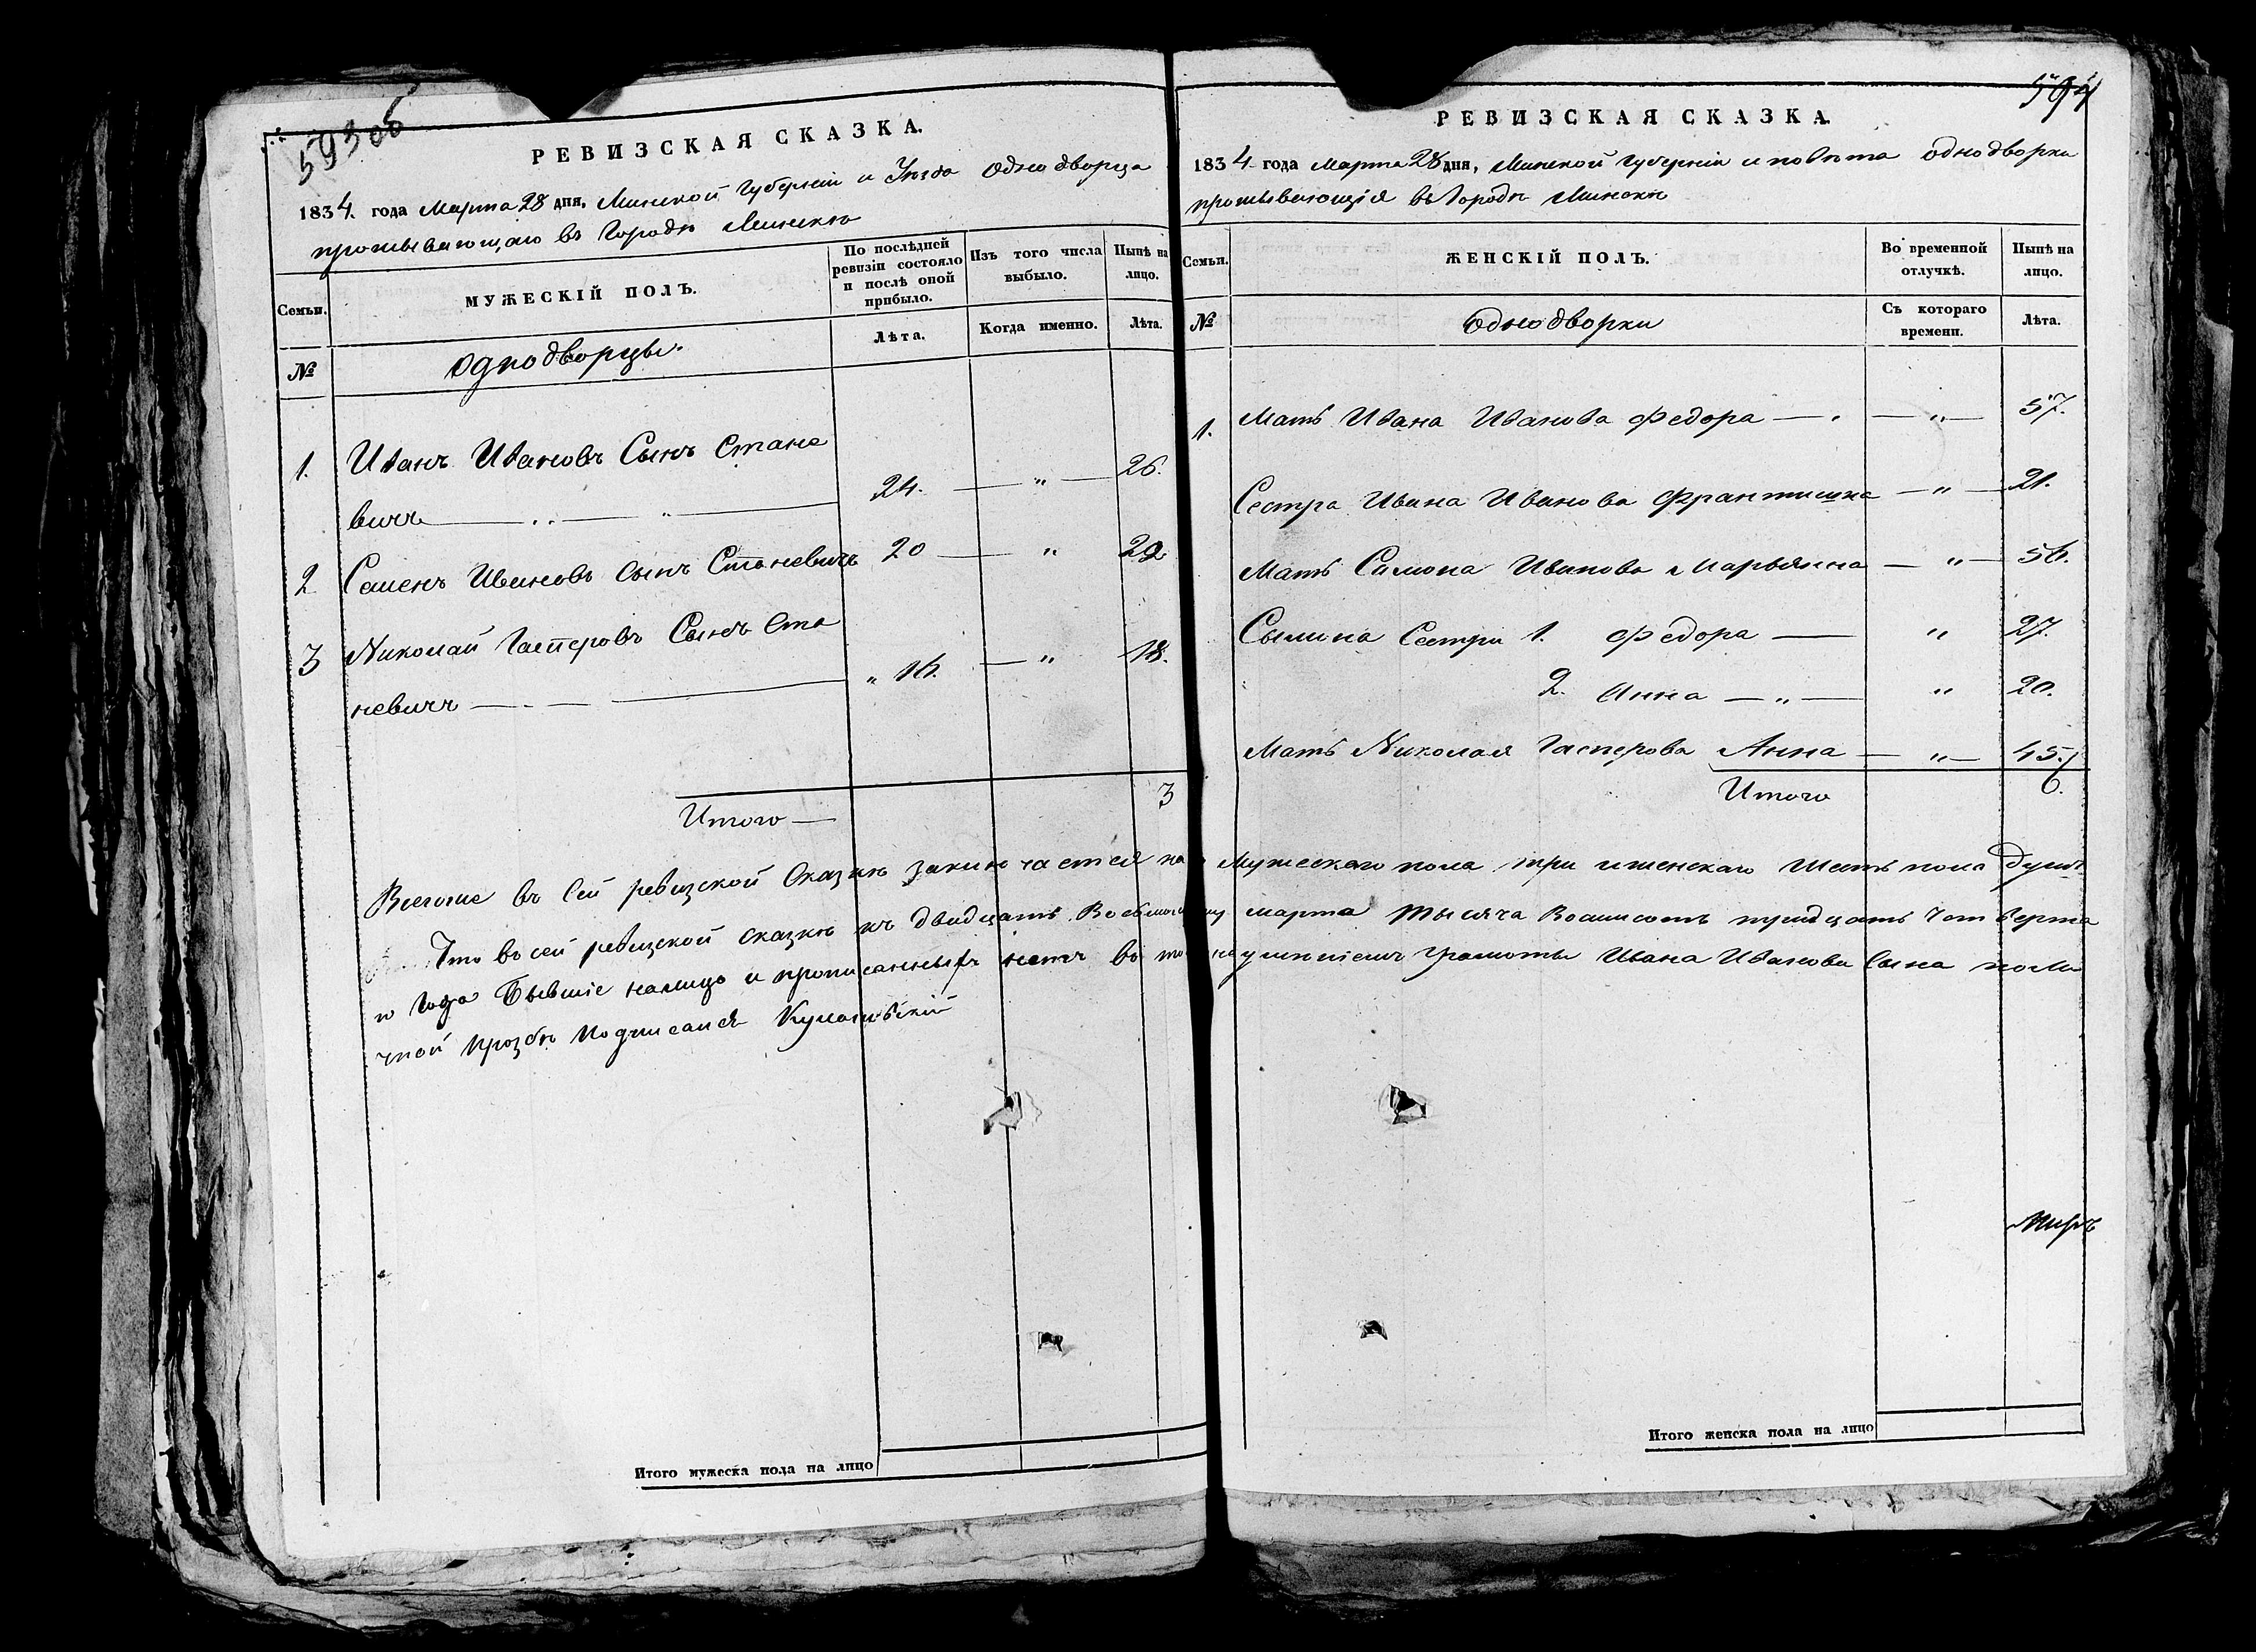 593об
РЕВИЗСКАЯ СКАЗКА.
1834. года Марта 28 дня, Минской Губерніи и Уѣзда Однодворца
проживающаго въ Городѣ Минскѣ
Семьи.
МУЖЕСКІЙ ПОЛЪ.
По послѣдней ревизіи состояло и послѣ оной прибыло.
Изъ того числа выбыло.
Нынѣ на лицо.
№
Однодворцы.
Лѣта.
Когда именно.
Лѣта.
1. Иванъ Ивановъ Сынъ Стане
вичъ 24. " 26.
2 Семенъ Ивановъ Сынъ Станевичъ 20 " 22
3 Николай Гасперовъ Сынъ Ста
невичъ " 16. " 18.
Итого 3
594
РЕВИЗСКАЯ СКАЗКА.
1834 года Марта 28 дня, Минской Губерніи и повѣта однодворки
проживающія въ Городѣ Минскѣ
Семьи.
ЖЕНСКІЙ ПОЛЪ.
Во временной отлучкѣ.
Нынѣ на лицо.
№
Однодворки
Съ котораго времени.
Лѣта.
1. Мать Ивана Иванова Федора " 57.
Сестра Ивана Иванова Франтишка " 21.
Мать Симона Иванова Марьянна " 56.
Сымона Сестри 1. Федора " 27.
2. Анна " " 20.
Мать Николая Гасперова Анна " 45.
Итого 6.
Всегоже въ Сей ревизской Сказкѣ заключается Мужескаго пола три и женскаго Шесть пола Душъ
Что въ сей ревизской сказкѣ къ двадцать Восьмому марта Тысяча Восимсотъ тридцать Четверта
го Года Бывшіе налицо и прописанныхъ нетъ въ томъ неумѣніемъ Грамоты Ивана Иванова Сына по Ли
чной прозбѣ Подписался
Миръ
Итого мужеска пола на лицо
Итого женска пола на лицо